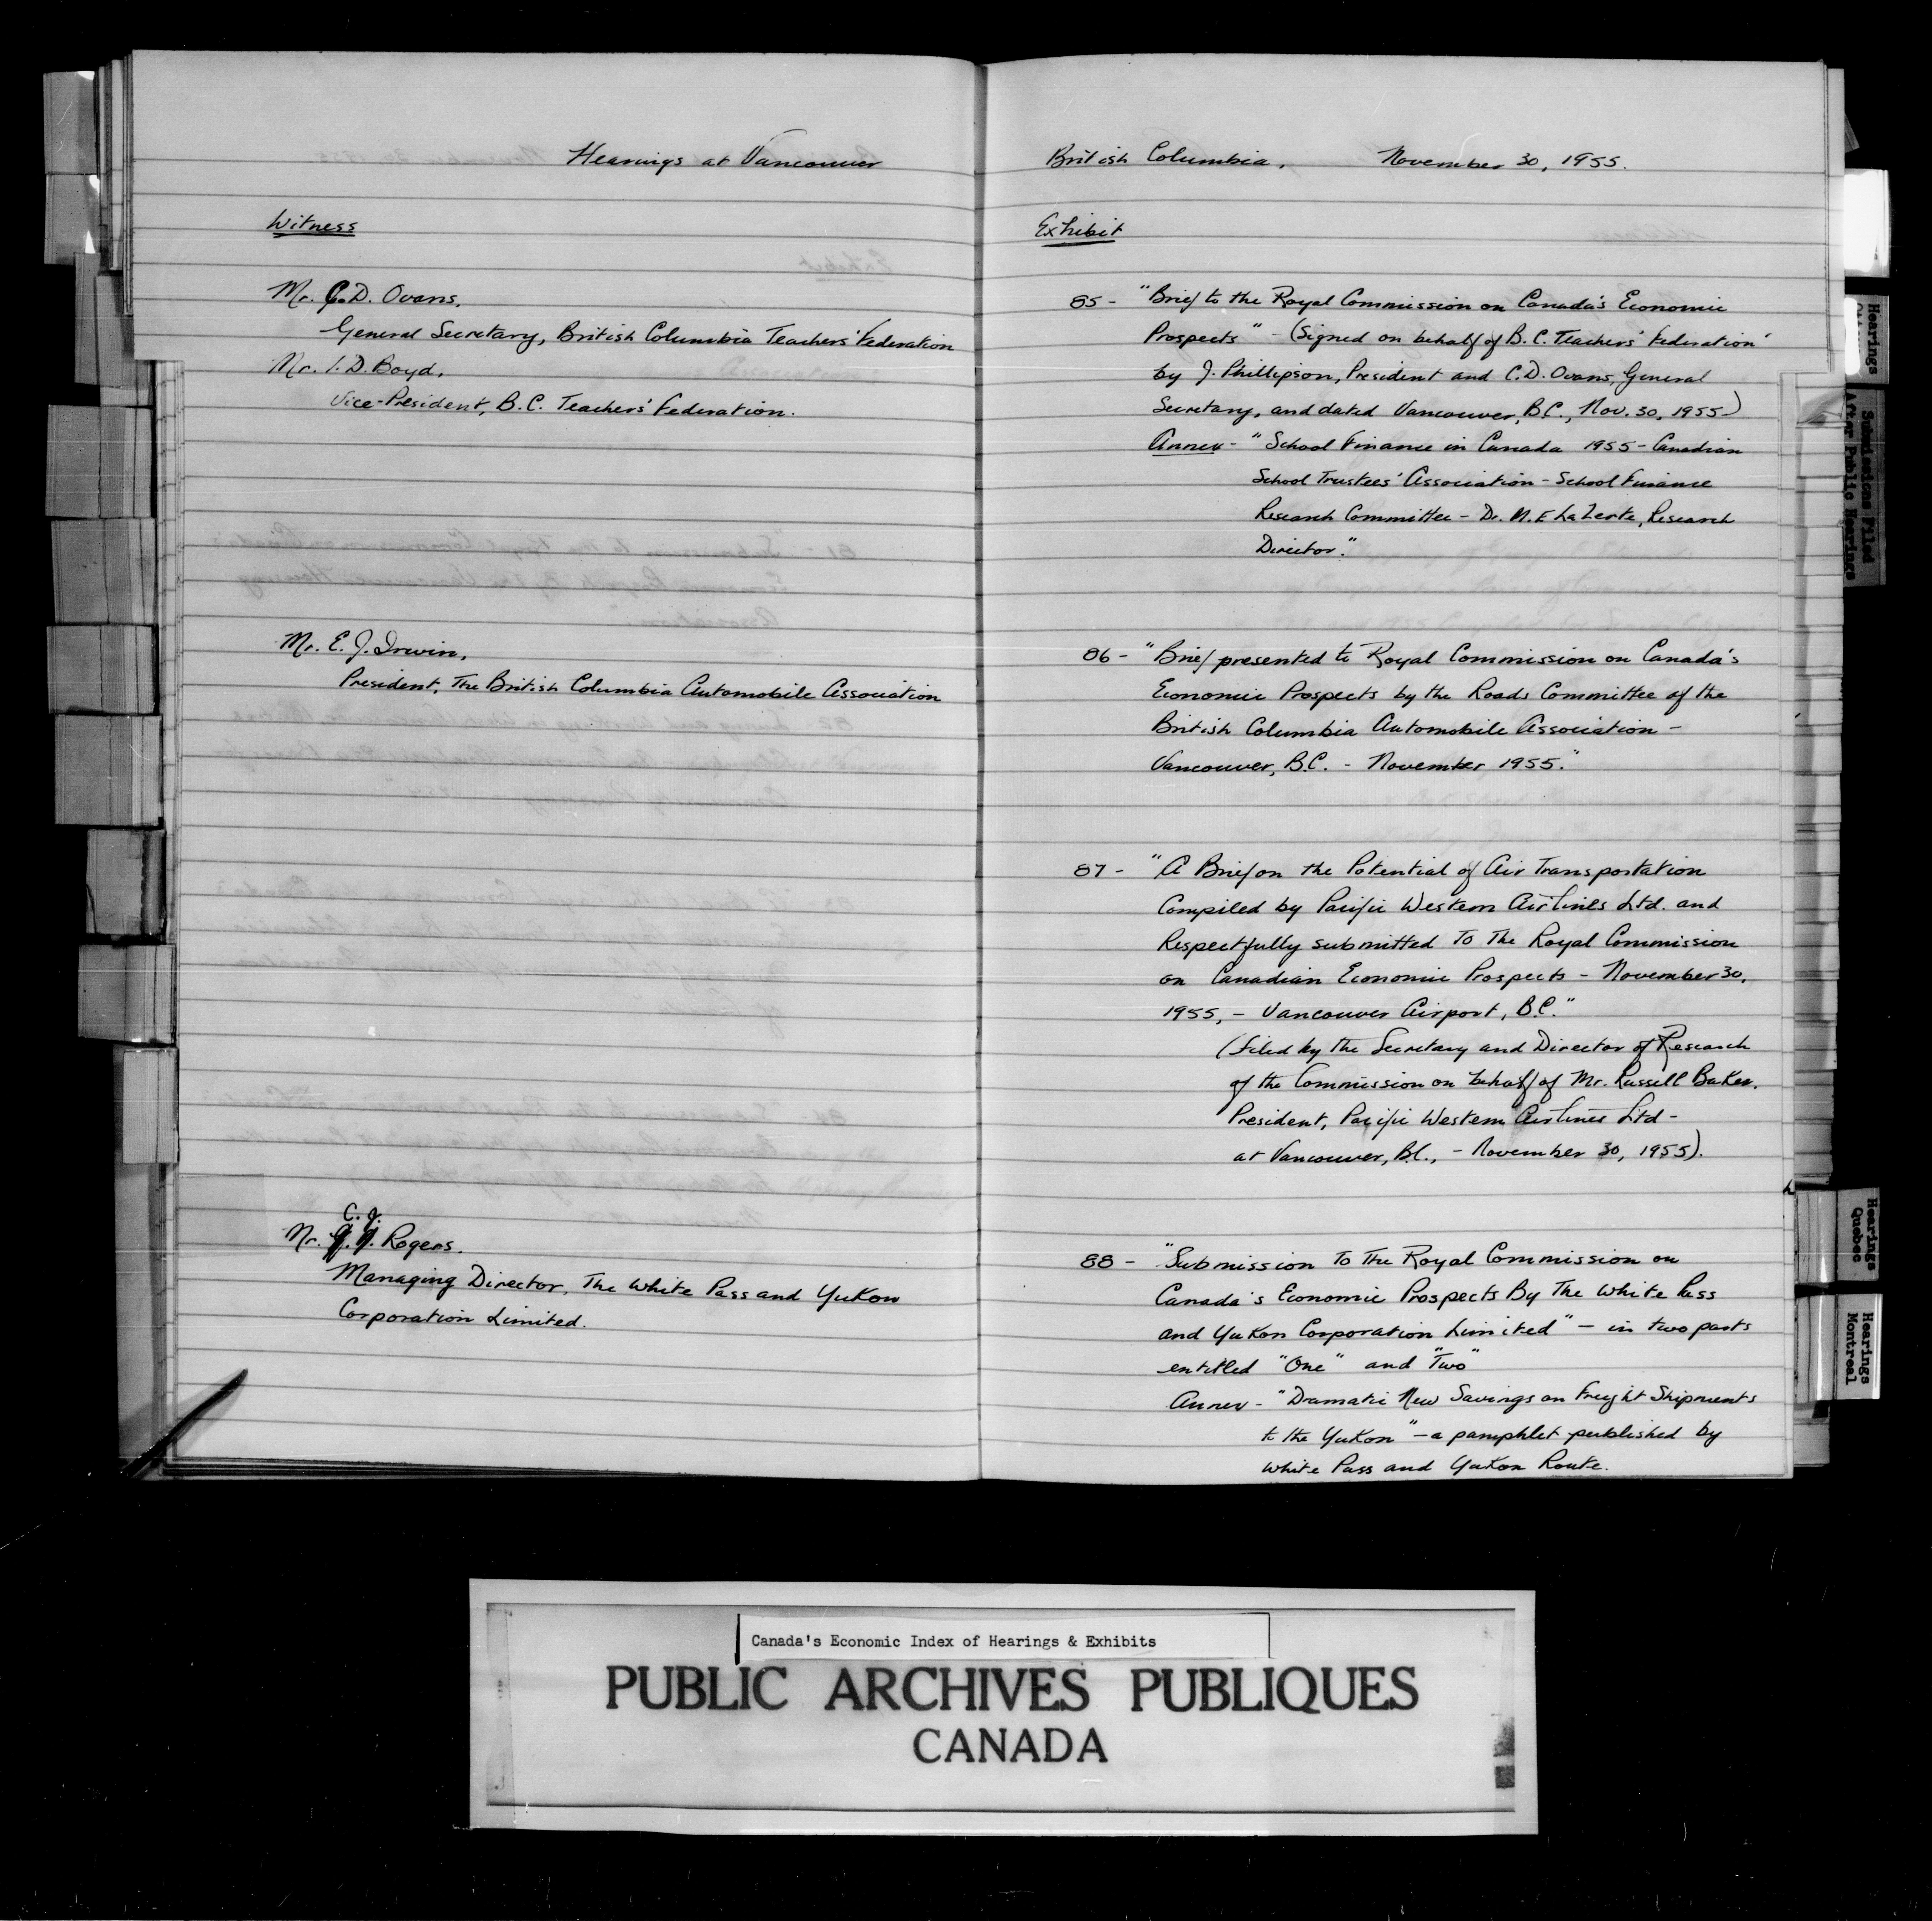 Hearings at Vancouver
Witness
Mr. C.D. Ovans.
General Secretary, British Columbia Teachers' Federation
Mr. I.D. Boyd.
Vice-President, B.C. Teachers' Federation.
Mr. E. J. Irwin,
President, The British Columbia Automobile Association
C. J.
Mr. Rogers.
Managing Director, The White Pass and Yukon
Corporation Limited.
British Columbia, November 30, 1955.
Exhibit
85 - "Brief to the Royal Commission on Canada's Economic
Prospects" - (Signed on behalf of B.C. Teachers' Federation
by J. Phillipson, President and C.D. Ovans, General
Secretary, and dated Vancouver, B.C., Nov. 30, 1955-)
Annex - "School Finance in Canada 1955 - Canadian
School Trustees' Association - School Finance
Research Committee - Dr. M. E LaZerte, Research
Director."
86 - "Brief presented to Royal Commission on Canada's
Economic Prospects by the Roads Committee of the
British Columbia Automobile Association -
Vancouver, B.C. - November 1955."
87 - "A Brief on the Potential of Air Transportation
Compiled by Pacific Western Airlines Ltd. and
Respectfully submitted To The Royal Commission
on Canadian Economic Prospects - November 30,
1955, - Vancouver Airport, B.C."
(Filed by the Secretary and Director of Research
of the Commission on behalf of Mr. Russell Baker.
President, Pacific Western Airlines Ltd -
at Vancouver, B.C., - November 30, 1955).
88 - "Submission To The Royal Commission on
Canada's Economic Prospects By The White Pass
and Yukon Corporation Limited" - in two parts
entitled "One" and "Two"
Annex - "Dramatic New Savings on Freight Shipments
to the Yukon" - a pamphlet published by
White Pass and Yukon Route.
Hearings
Submissions Filed
After Public Hearings
Hearings
Quebec
Hearings
Montreal
Canada's Economic Index of Hearings & Exhibits
PUBLIC ARCHIVES PUBLIQUES
CANADA